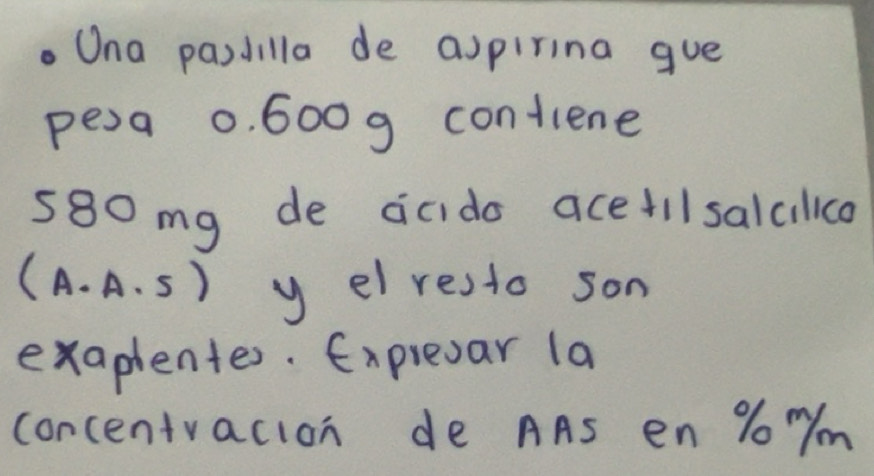 • Una pastilla de aspirina que
pesa 0.600 g contiene
580 mg de ácido acetilsalcílico
(A.A.S) y el resto son
exapientes. Expresar la
concentración de AAS en % m/m